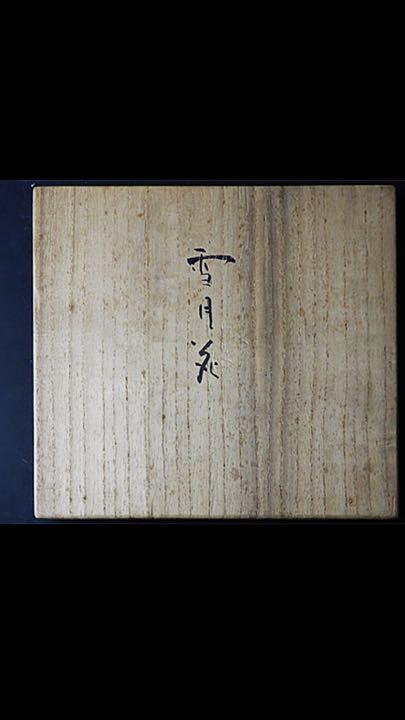 雪月花